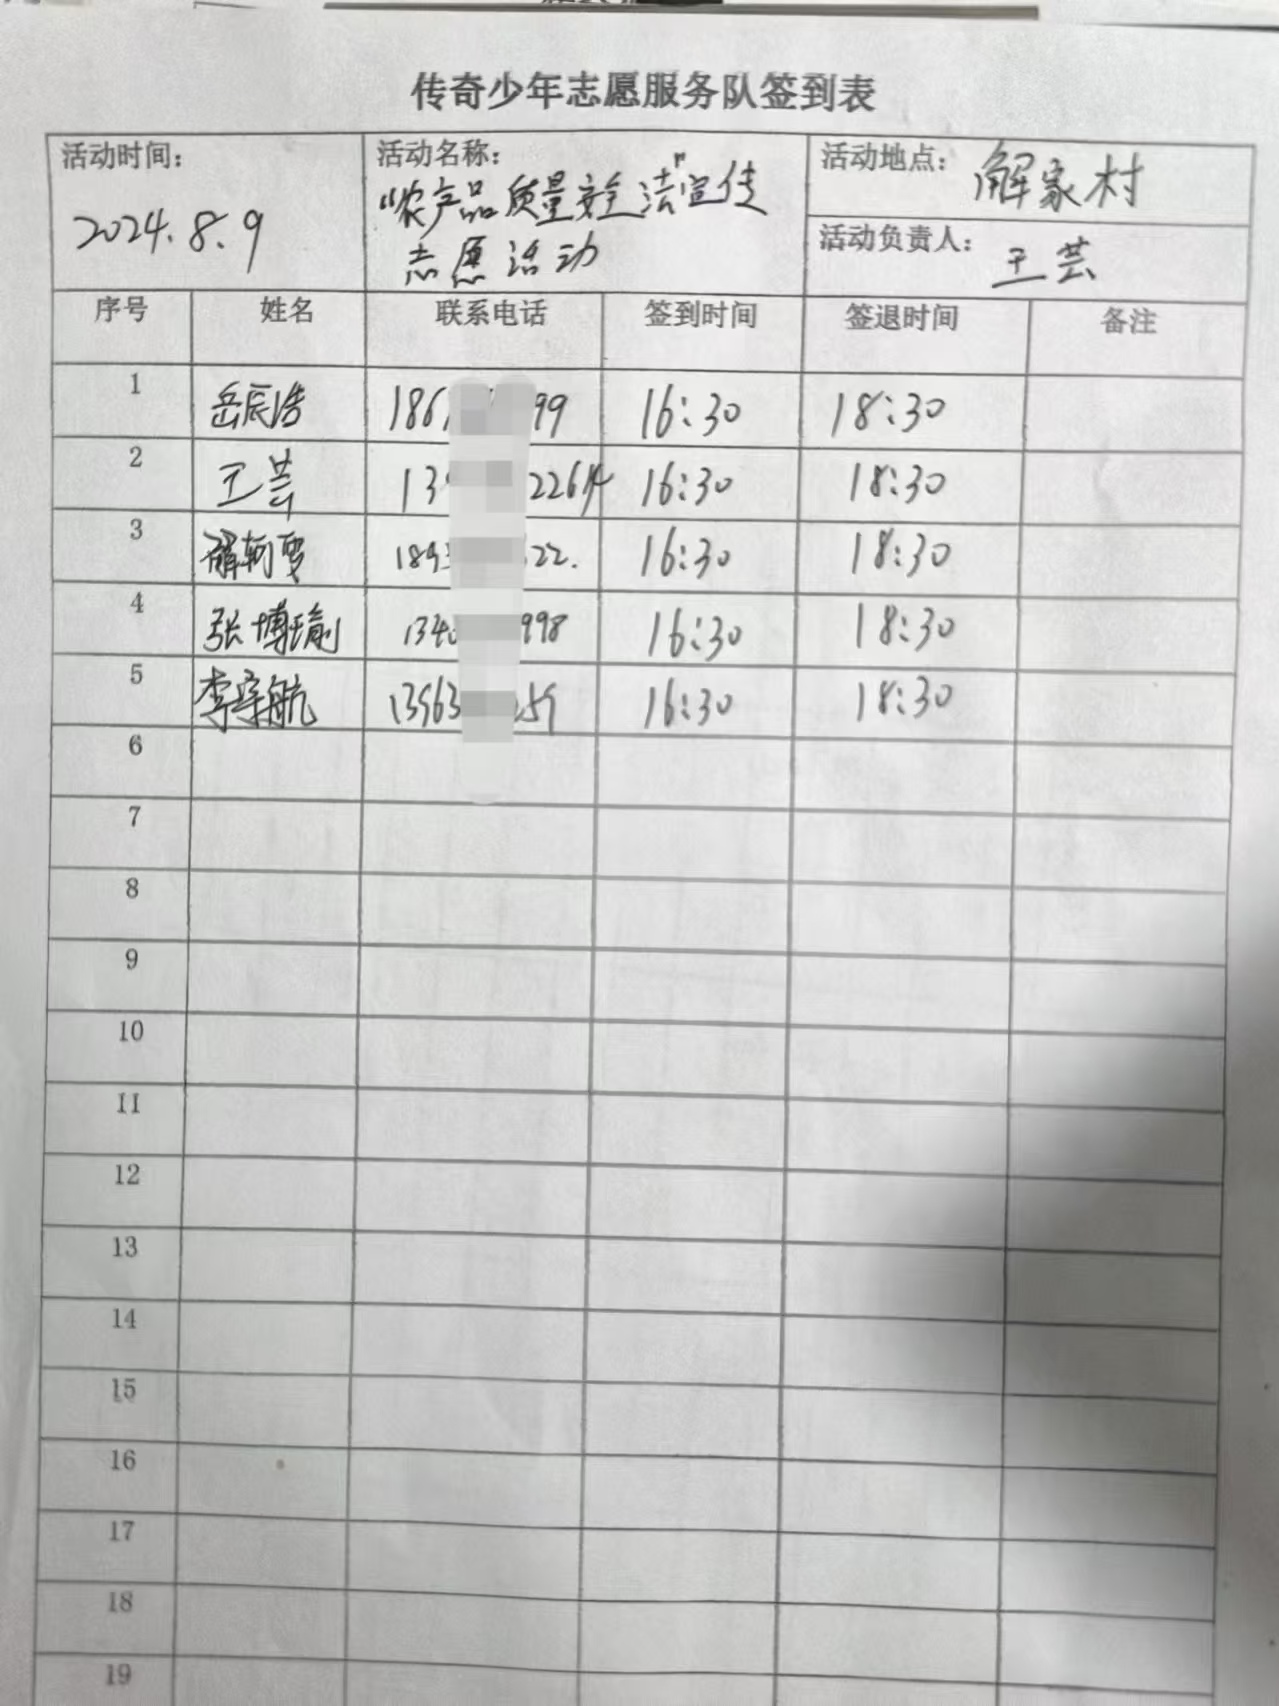 传奇少年志愿服务队签到表
活动时间：
2024.8.9
活动名称：
“农产品质量安全法”宣传
志愿活动
活动地点：解家村
活动负责人：王芸
序号 姓名 联系电话 签到时间 签退时间 备注
1 岳辰浩 186 99 16:30 18:30
2 王芸 13 2264 16:30 18:30
3 189 22. 16:30 18:30
4 张博瑜 134 998 16:30 18:30
5 李宇航 13963 259 16:30 18:30
6
7
8
9
10
11
12
13
14
15
16
17
18
19